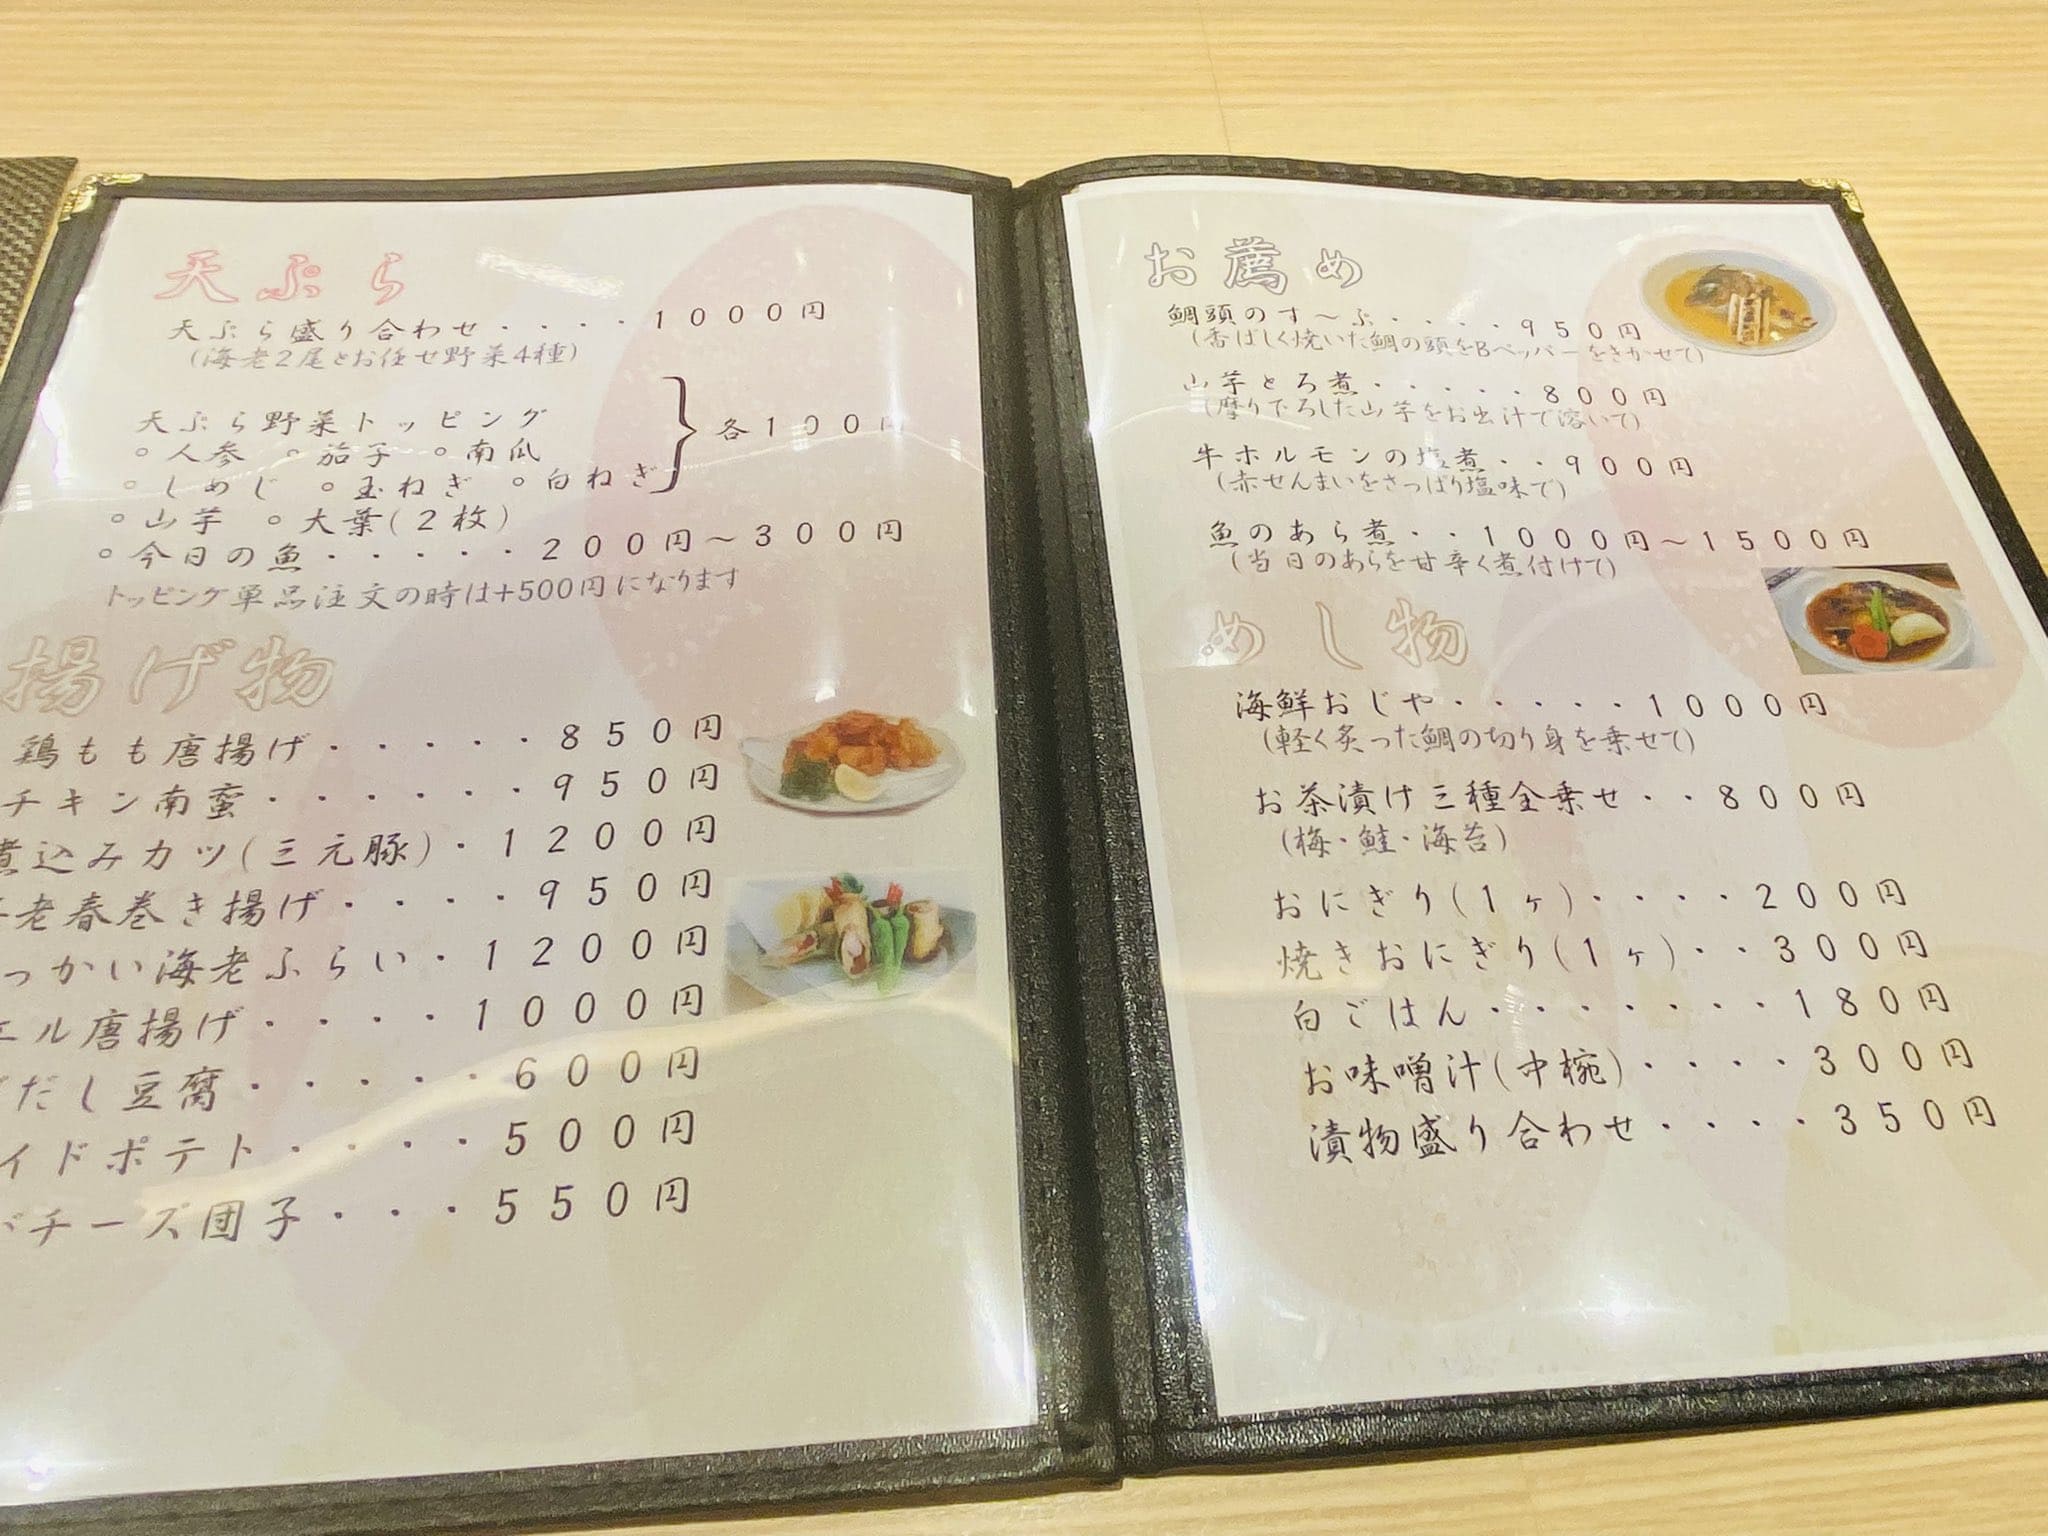 天ぷら
天ぷら盛り合わせ・・・・1000円
(海老2尾とお任せ野菜4種)
天ぷら野菜トッピング
。人参 。茄子 。南瓜
各100円
。しめじ 。玉ねぎ 。白ねぎ
。山芋 。大葉(2枚)
。今日の魚・・・・・200円～300円
トッピング単品注文の時は+500円になります
揚げ物
鶏もも唐揚げ・・・・・850円
チキン南蛮・・・・・・950円
煮込みカツ(三元豚)・1200円
老春巻き揚げ・・・・950円
っかい海老ふらい・1200円
エル唐揚げ・・・・1000円
だし豆腐・・・・・600円
イドポテト・・・・500円
チーズ団子・・・550円
お薦め
鯛頭のす～ぷ・・・・950円
(香ばしく焼いた鯛の頭をBペッパーをきかせて)
山芋とろ煮・・・・・800円
(摩り下ろした山芋をお出汁で溶いて)
牛ホルモンの塩煮・・900円
(赤せんまいをさっぱり塩味で)
魚のあら煮・・1000円～1500円
(当日のあらを甘辛く煮付けて)
めし物
海鮮おじや・・・・・1000円
(軽く炙った鯛の切り身を乗せて)
お茶漬け三種全乗せ・・800円
(梅・鮭・海苔)
おにぎり(1ヶ)・・・・200円
焼きおにぎり(1ヶ)・・300円
白ごはん・・・・・・・180円
お味噌汁(中椀)・・・・300円
漬物盛り合わせ・・・・350円